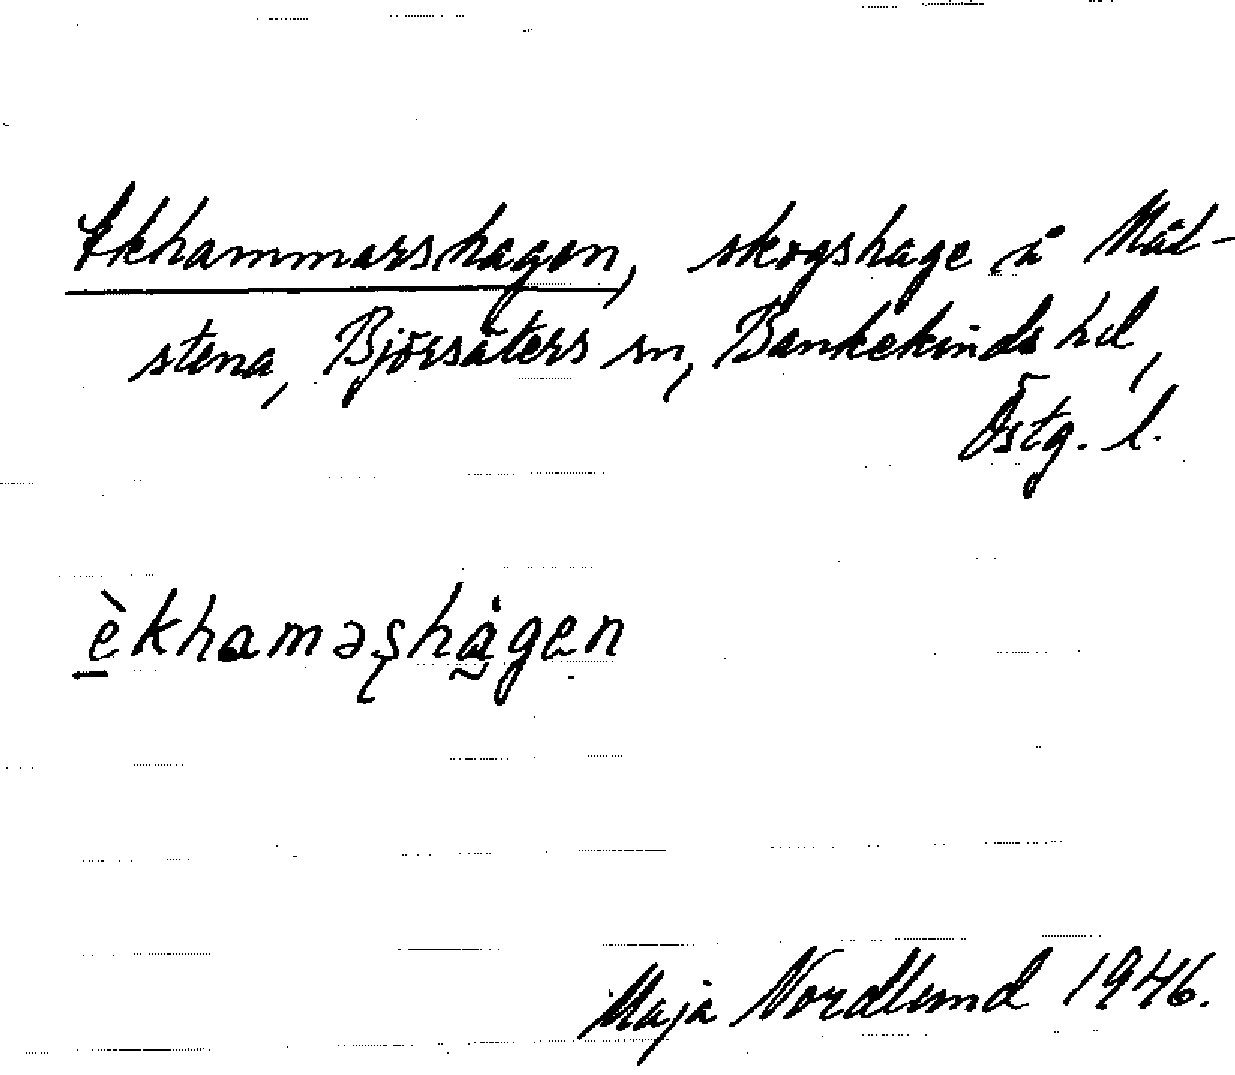 Ekhammarshagen, skogshage å Mål-
stena, Björsäters sn, Bankekinds hd,
Östg. l.
èkhamaşhågen
Maja Nordlund 1946.